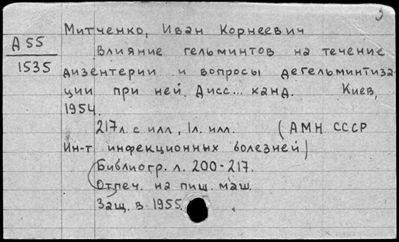 Митченко, Иван Корнеевич
А 55
1535
Влияние гельминтов на течение
дизентерии и вопросы дегельминтиза
ции при ней. Дисс... канд. Киев,
1954.
217л. с илл, 1л. илл. (АМН СССР
Ин-т инфекционных болезней)
Библиогр. л. 200-217.
Отпеч. на пиш. маш.
Защ. в 1955.